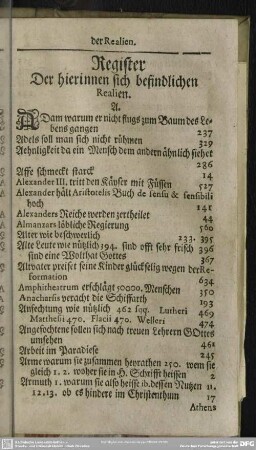 der Realien.
Register
Der hierinnen sich befindlichen
Realien.
A.
ADam warum er nicht flugs zum Baum des Lebens gangen 237
Adels soll man sich nicht rühmen 329
Aehnligkeit da ein Mensch dem andern ähnlich siehet
286
Affe schmeckt starck 14
Alexander III. tritt den Käyser mit Füssen 527
Alexander hält Aristotelis Buch de sensu & sensibili
hoch 141
Alexanders Reiche werden zertheilet 44
Almanzars löbliche Regierung 560
Alter wie beschwerlich 233. 395
Alte Leute wie nützlich 394. sind offt sehr frisch 396
sind eine Wolthat Gottes 367
Altvater preiset seine Kinder glückselig wegen der Reformation 634
Amphitheatrum erschlägt 50000. Menschen 350
Anacharsis veracht die Schiffarth 193
Anfechtung wie nützlich 462 sqq. Lutheri 469
Matthesii 470. Flacii 470. Welleri 474
Angefochtene sollen sich nach treuen Lehrern GOttes
umsehen 461
Arbeit im Paradiese 245
Arme warum sie zusammen heyrathen 250. wem sie
gleich 1. 2. woher sie in H. Schrifft heissen 2
Armuth 1. warum sie also heisse ib. dessen Nutzen 11.
12. 13. ob es hindere im Christenthum 17
Athens